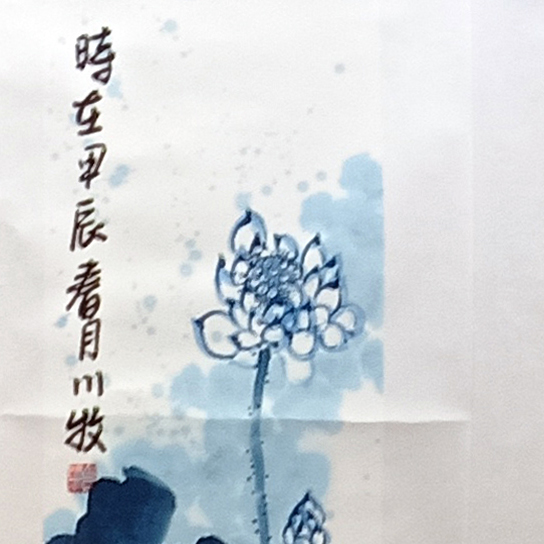 時在甲辰春月川牧